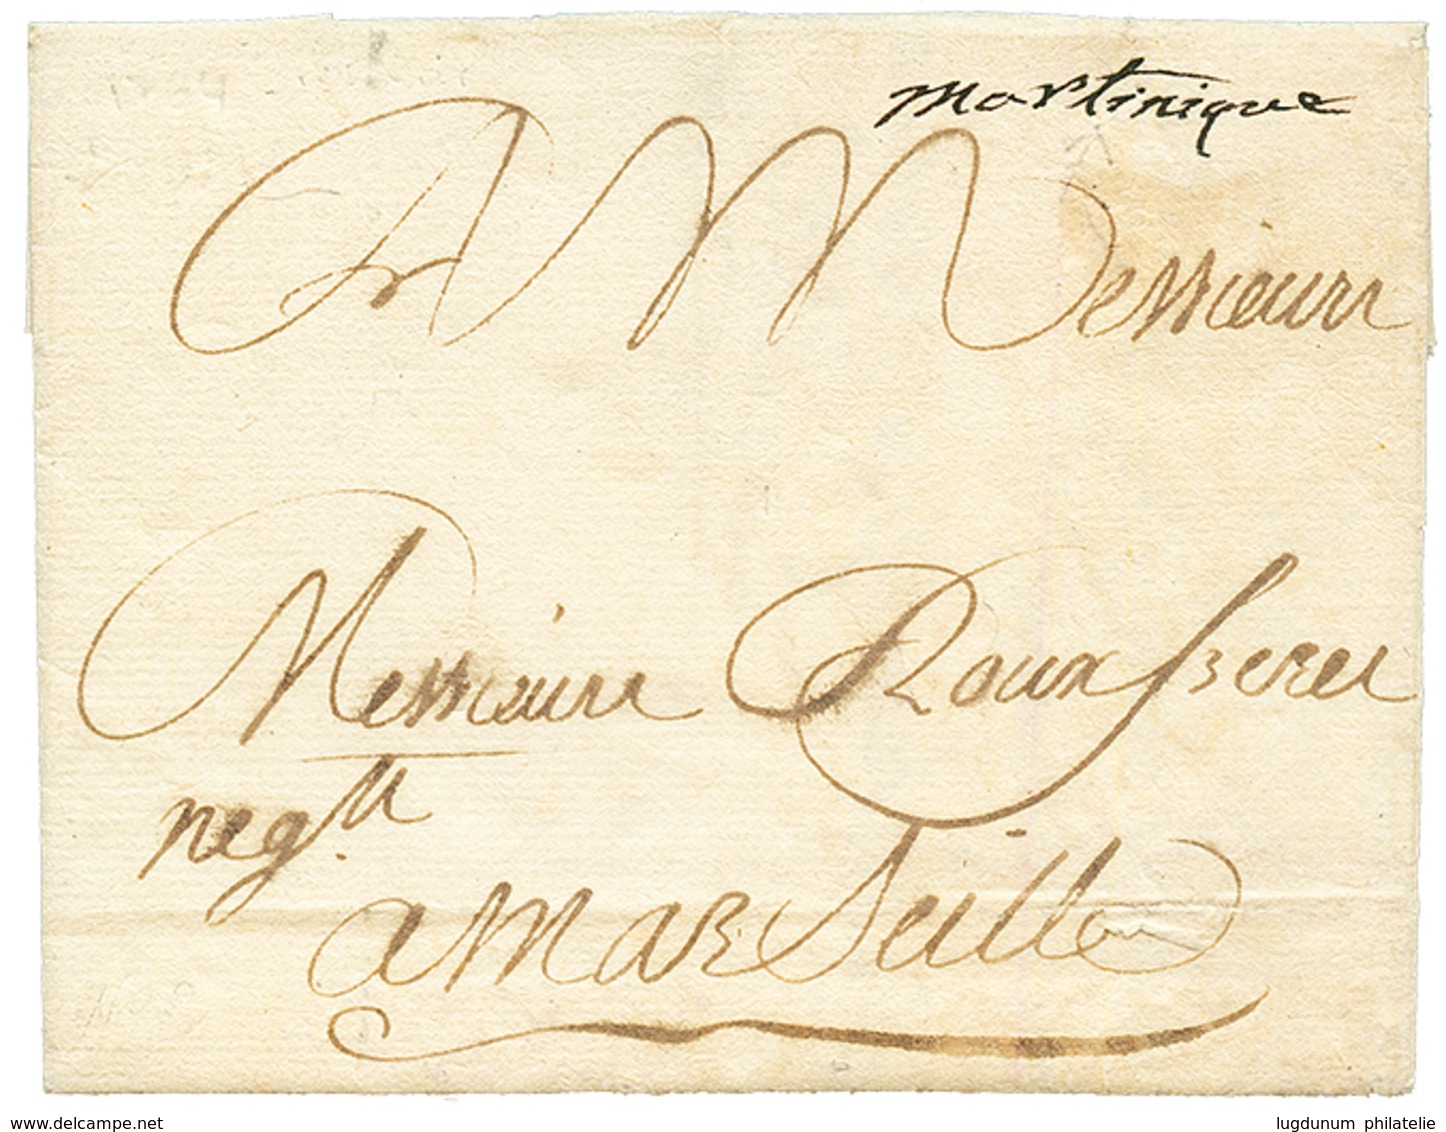 Martinique
A Messieurs
Messieurs Roux freres
neg.ts
a Marseille
www.delcampe.net
lugdunum philatelie